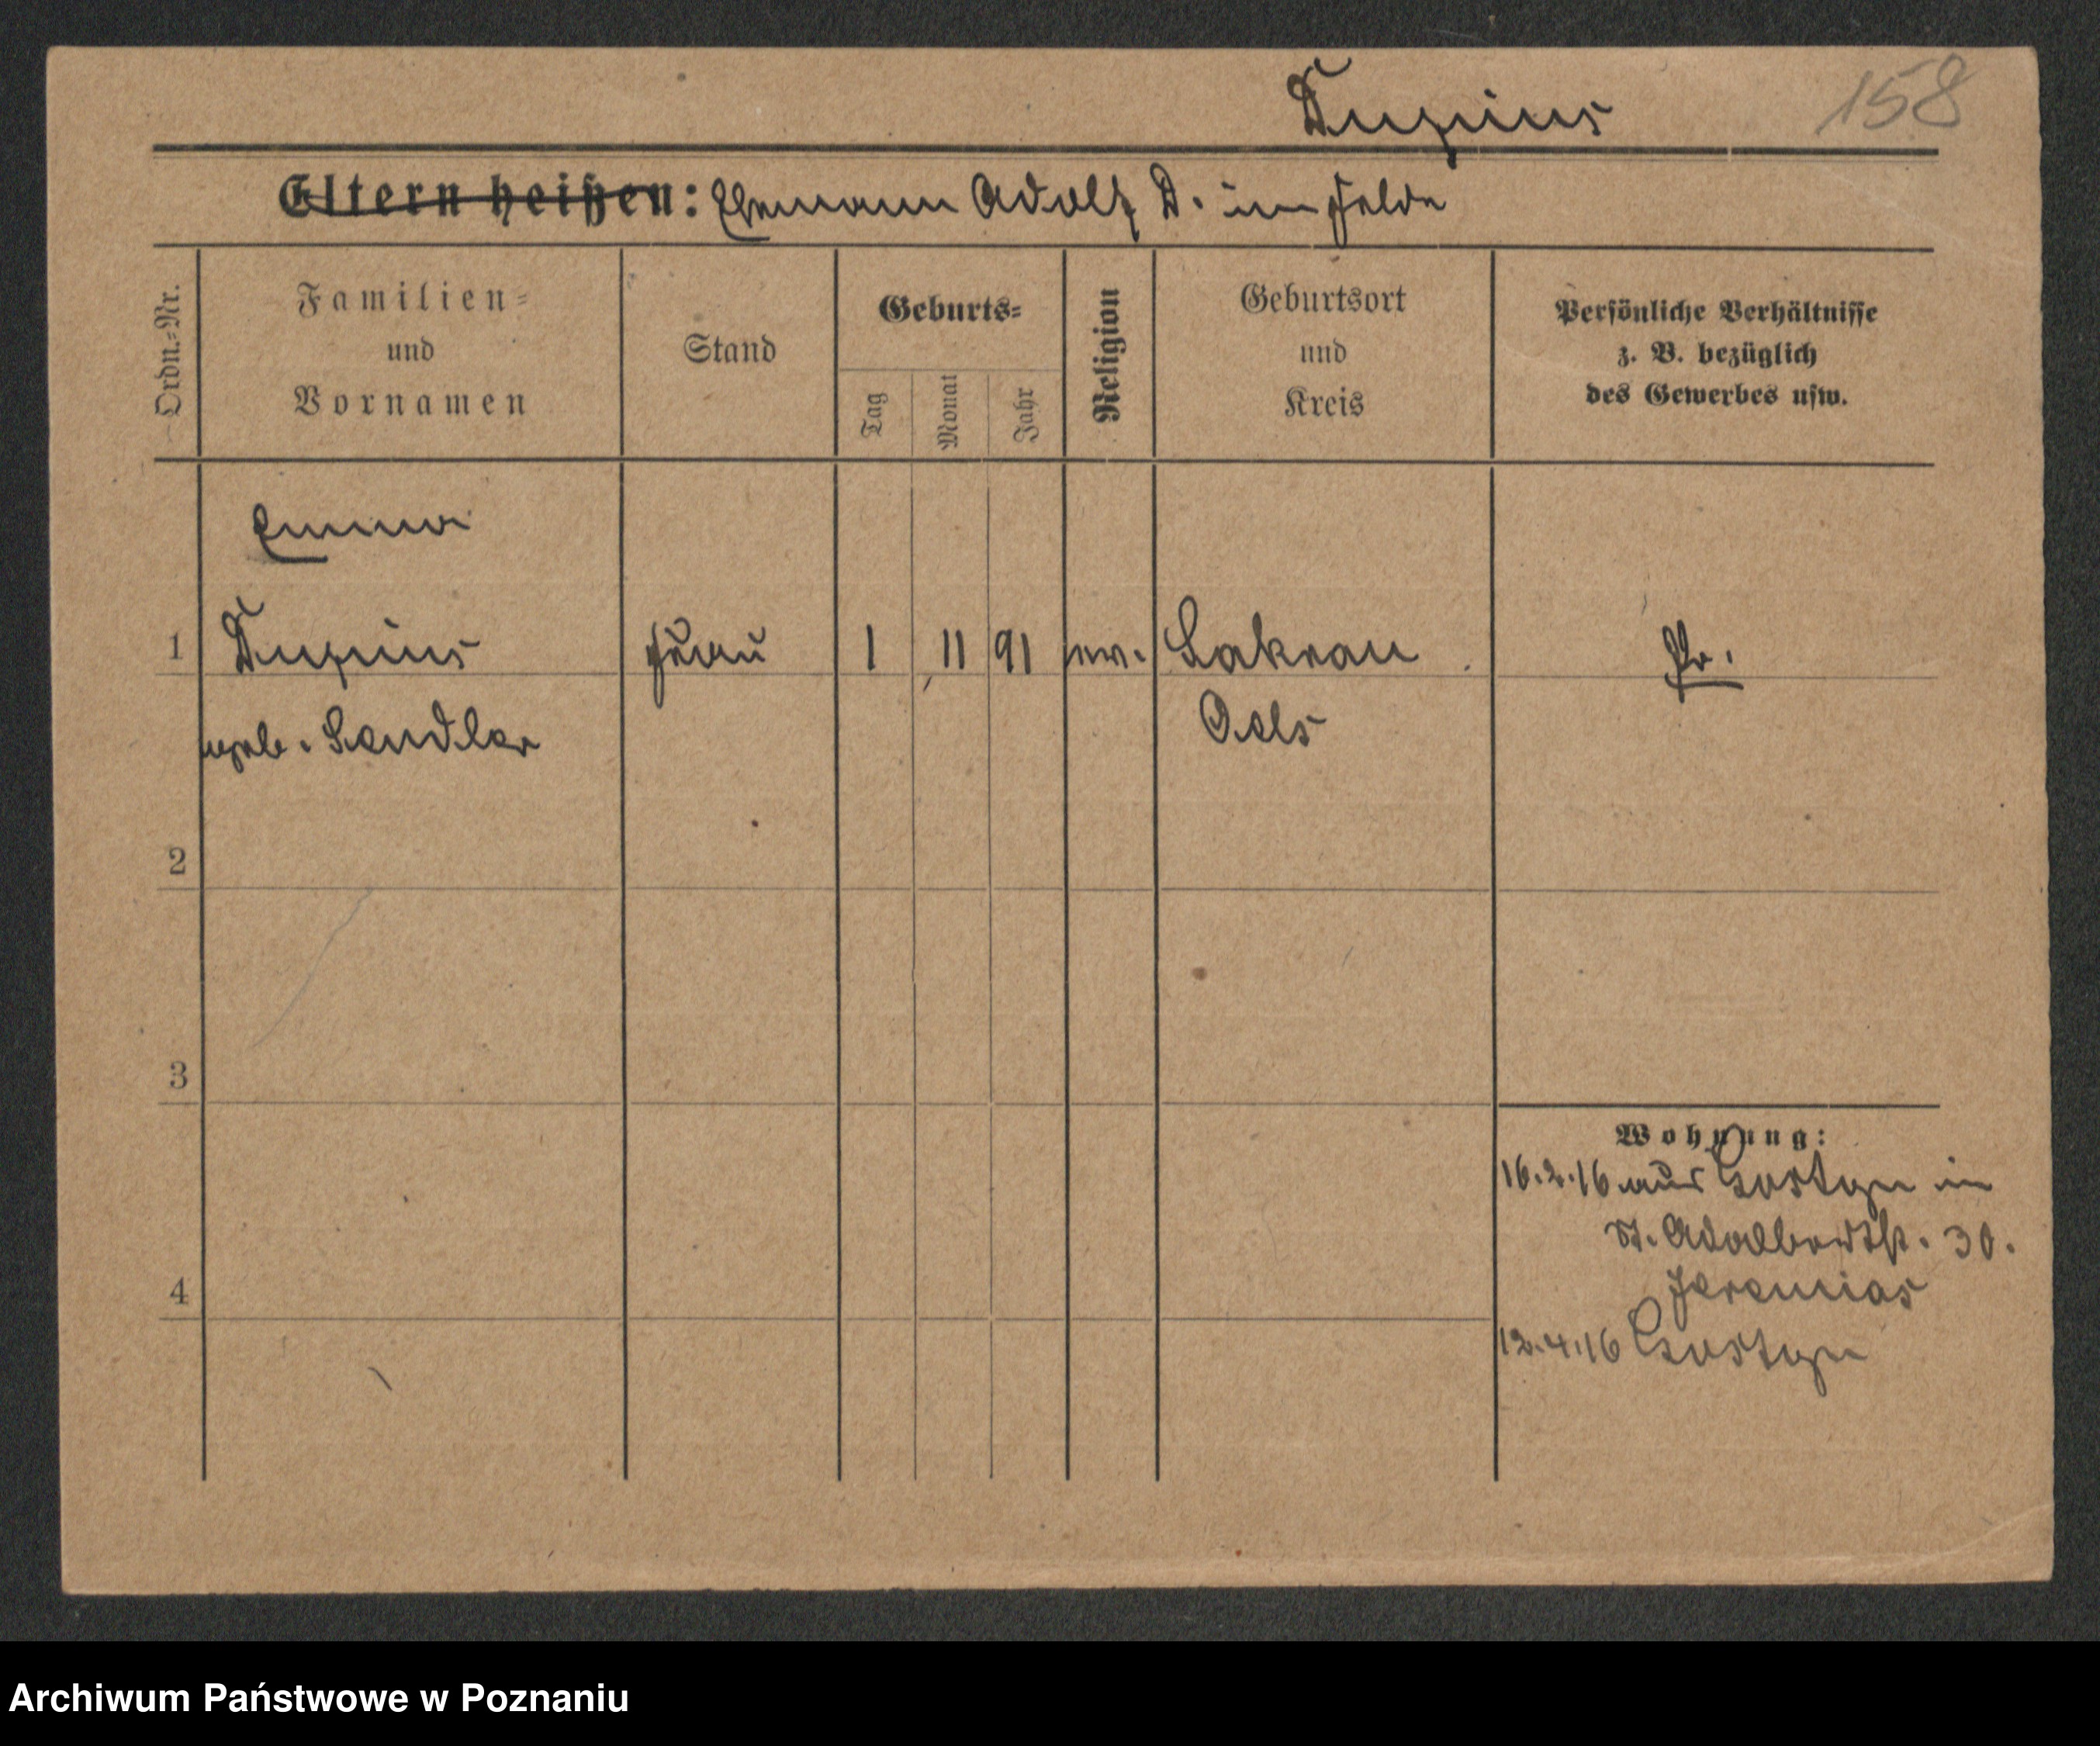 158
Ehemann Adolf D. im Felde
Eltern heißen:
Ordn.-Nr.
Familien-
und
Vornamen
Stand
Geburts-
Tag
Monat
Jahr
Religion
Geburtsort
und
Kreis
Persönliche Verhältnisse
z. B. bezüglich
des Gewerbes usw.
Emma
1 Frau 1 11 91 Lakrau Pr.
geb. Sendler Oels
2
3
4
Wohnung:
16.2.16 aus Gostyn in
St. Adalbertstr. 30.
Jeremias
12.4.16 Gostyn
Archiwum Państwowe w Poznaniu